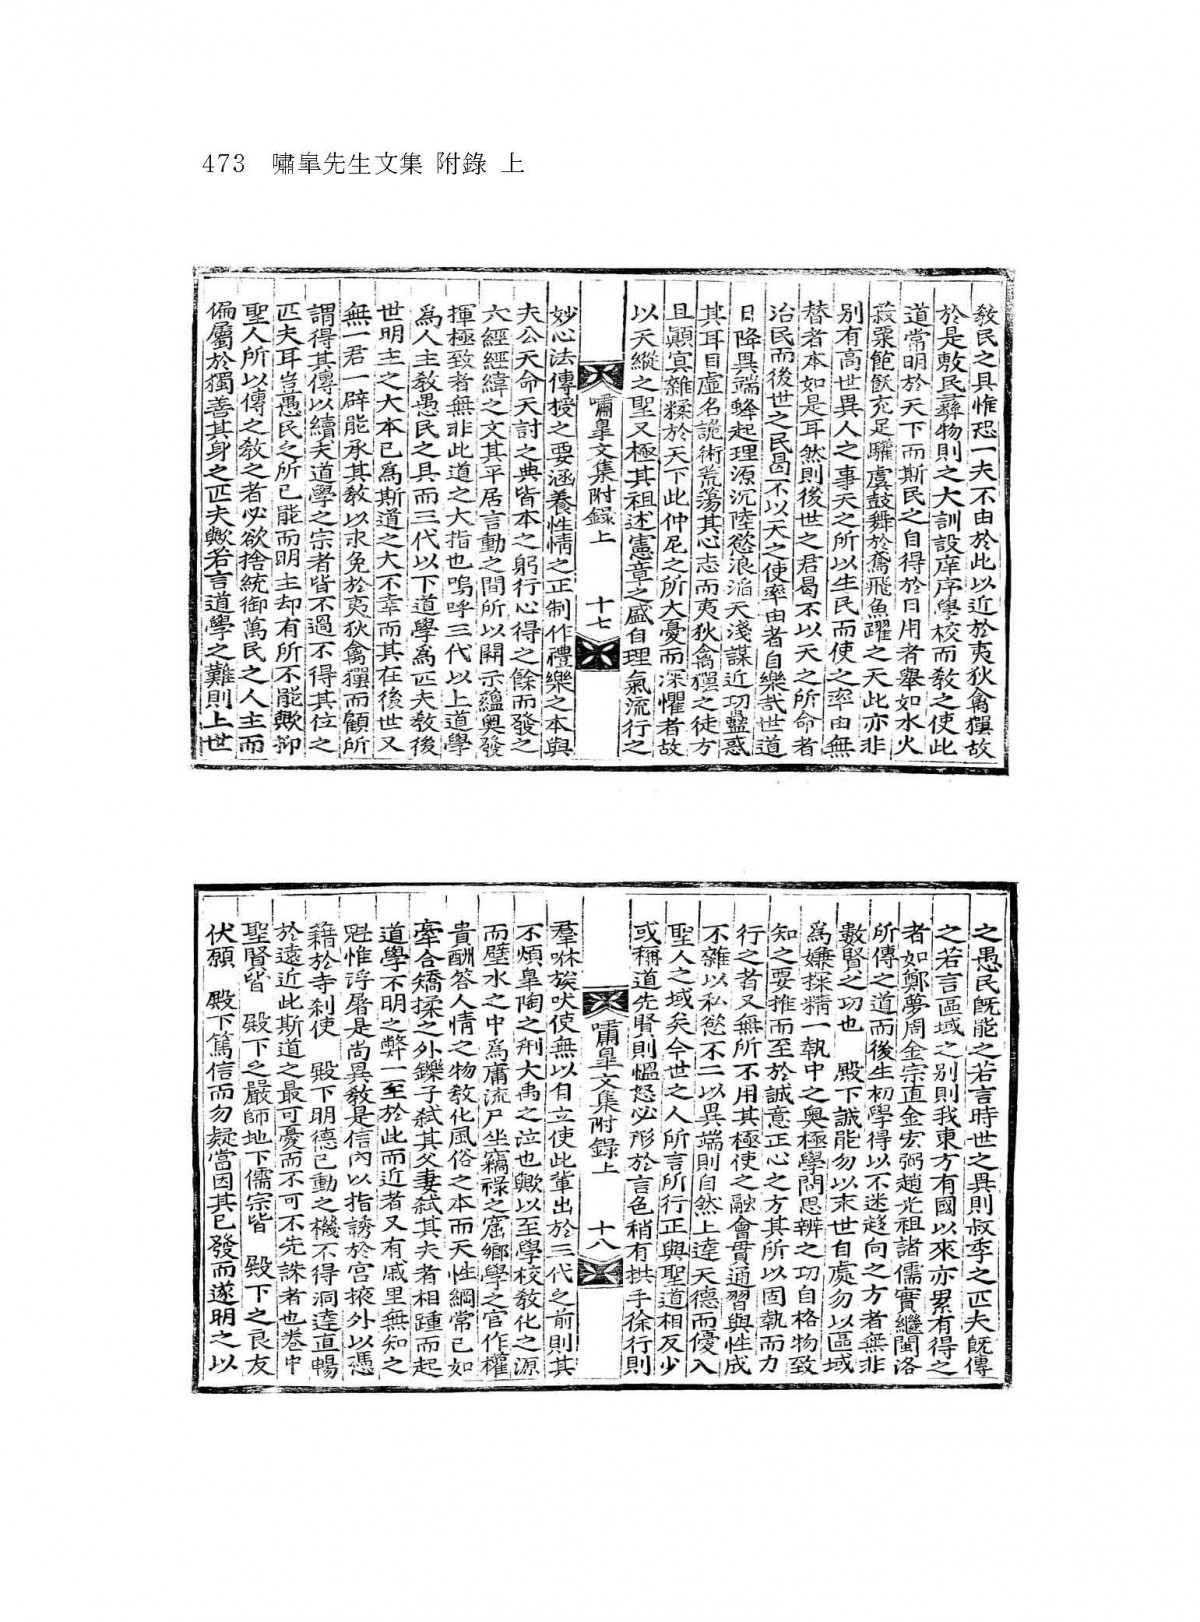 473 嘯皐先生文集 附錄 上
敎民之具惟恐一夫不由於此以近於夷狄禽獸故
於是敷民彝物則之大訓設庠序學校而敎之使此
道常明於天下而斯民之自得於日用者擧如水火
菽粟飽飫充足驩虞鼓舞於鳶飛魚躍之天此亦非
別有高世異人之事天之所以生民而使之率由無
替者本如是耳然則後世之君曷不以天之所命者
治民而後世之民曷不以天之使率由者自樂哉世道
日降異端蜂起理源沉陸慾浪滔天淺謀近功蠱惑
其耳目虛名詭術荒蕩其心志而夷狄禽獸之徒方
且顚冥雜糅於天下此仲尼之所大憂而深懼者故
以天縱之聖又極其祖述憲章之盛自理氣流行之
嘯皐文集附錄上 十七
妙心法傳授之要涵養性情之正制作禮樂之本與
夫公天命天討之典皆本之躬行心得之餘而發之
六經經緯之文其平居言動之間所以開示蘊奧發
揮極致者無非此道之大指也嗚呼三代以上道學
爲人主敎愚民之具而三代以下道學爲匹夫敎後
世明主之大本已爲斯道之大不幸而其在後世又
無一君一辟能承其敎以求免於夷狄禽獸而顧所
謂得其傳以續夫道學之宗者皆不過不得其位之
匹夫耳豈愚民之所已能而明主却有所不能歟抑
聖人所以傳之敎之者必欲捨統御萬民之人主而
偏屬於獨善其身之匹夫歟若言道學之難則上世
之愚民旣能之若言時世之異則叔季之匹夫旣傳
之若言區域之別則我東方有國以來亦累有得之
者如鄭夢周金宗直金宏弼趙光祖諸儒實繼閩洛
所傳之道而後生初學得以不迷趍向之方者無非
數賢之功也 殿下誠能勿以末世自處勿以區域
爲嫌探精一執中之奧極學問思辨之功自格物致
知之要推而至於誠意正心之方其所以固執而力
行之者又無所不用其極使之融會貫通習與性成
不雜以私慾不二以異端則自然上達天德而優入
聖人之域矣今世之人所言所行正與聖道相反少
或稱道先賢則慍怒必形於言色稍有拱手徐行則
嘯皐文集附錄上 十八
羣咻族吠使無以自立使此輩出於三代之前則其
不煩皐陶之刑大禹之泣也歟以至學校敎化之源
而璧水之中爲庸流尸坐竊祿之窟鄕學之官作權
貴酬答人情之物敎化風俗之本而天性綱常已如
牽合矯揉之外鑠子弑其父妻弑其夫者相踵而起
道學不明之弊一至於此而近者又有戚里無知之
尩惟浮屠是尚異敎是信內以指誘於宮掖外以憑
籍於寺刹使 殿下明德已動之機不得洞達直暢
於遠近此斯道之最可憂而不可不先誅者也卷中
聖賢皆 殿下之嚴師地下儒宗皆 殿下之良友
伏願 殿下篤信而勿疑當因其已發而遂明之以